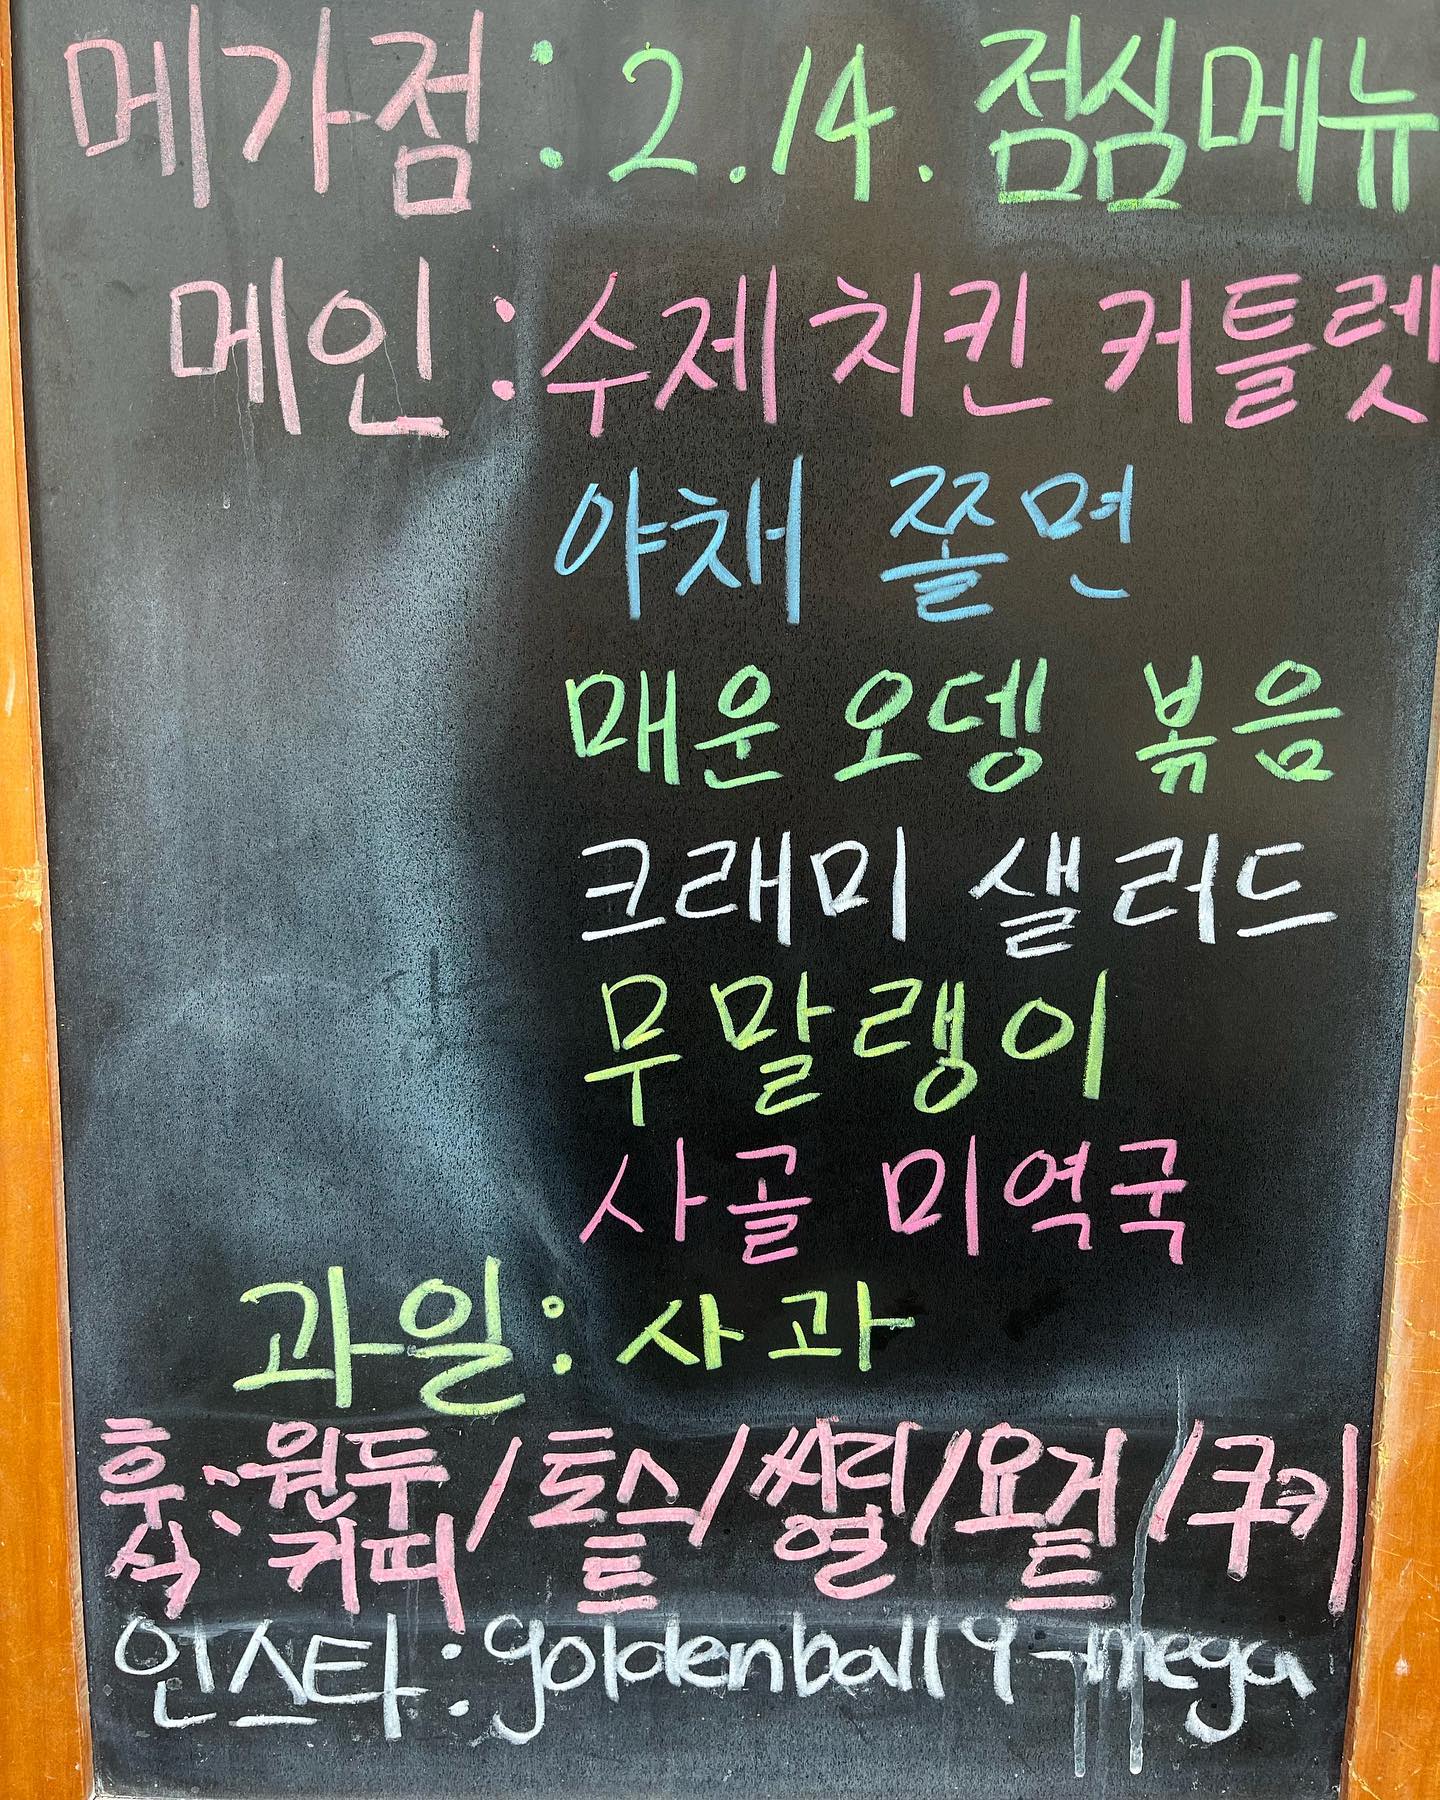 메가점 : 2.14. 점심메뉴
메인 : 수제 치킨 커틀렛
야채 쫄면
매운 오뎅 볶음
크래미 샐러드
무말랭이
사골 미역국
과일 : 사과
후식 : 원두커피 / 토스트 / 씨리얼 / 요거트 / 쿠키
인스타 : goldenball9_mega